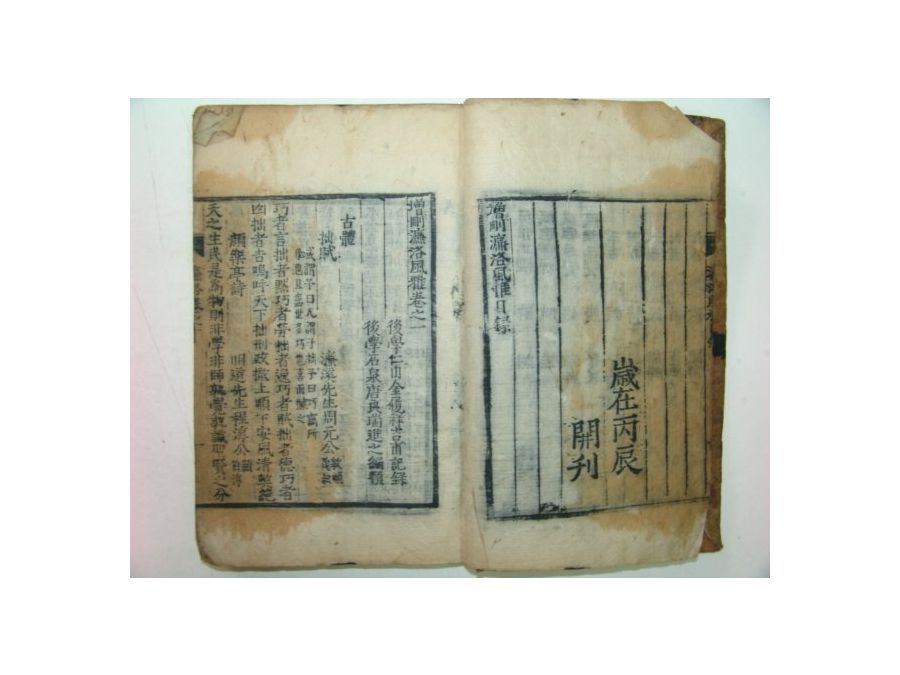 增刪濂洛風雅目錄
歲在丙辰
開刊
增刪濂洛風雅卷之一
後學仁山金履祥吉甫記錄
後學石泉唐良瑞進之編類
古體
拙賦 濂溪先生周元公
或謂予曰人謂子拙予曰巧竊所
恥也且患世多巧也喜而賦之
巧者言拙者默巧者勞拙者逸巧者賊拙者德巧者
凶拙者吉嗚呼天下拙刑政撤上順下安風清弊絶
顏樂亭詩 明道先生程淳公
天之生民是爲物則非學非師孰覺孰識聖賢之分